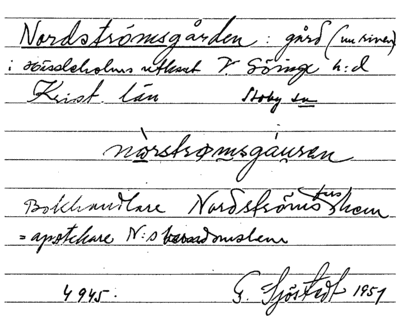 Nordströmsgården: gård (nu riven)
i Hässleholms utkant V. Göinge h:d
Krist. län Stoby sn
nòrstrømsgáuren
Bokhandlare Nordströms hus, hem
= apotekare N:s barndomshem
4945. G. Sjöstedt 1951